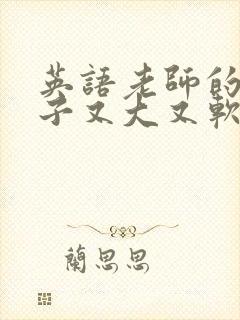 英語老師的
子又大又軟
蘭思思